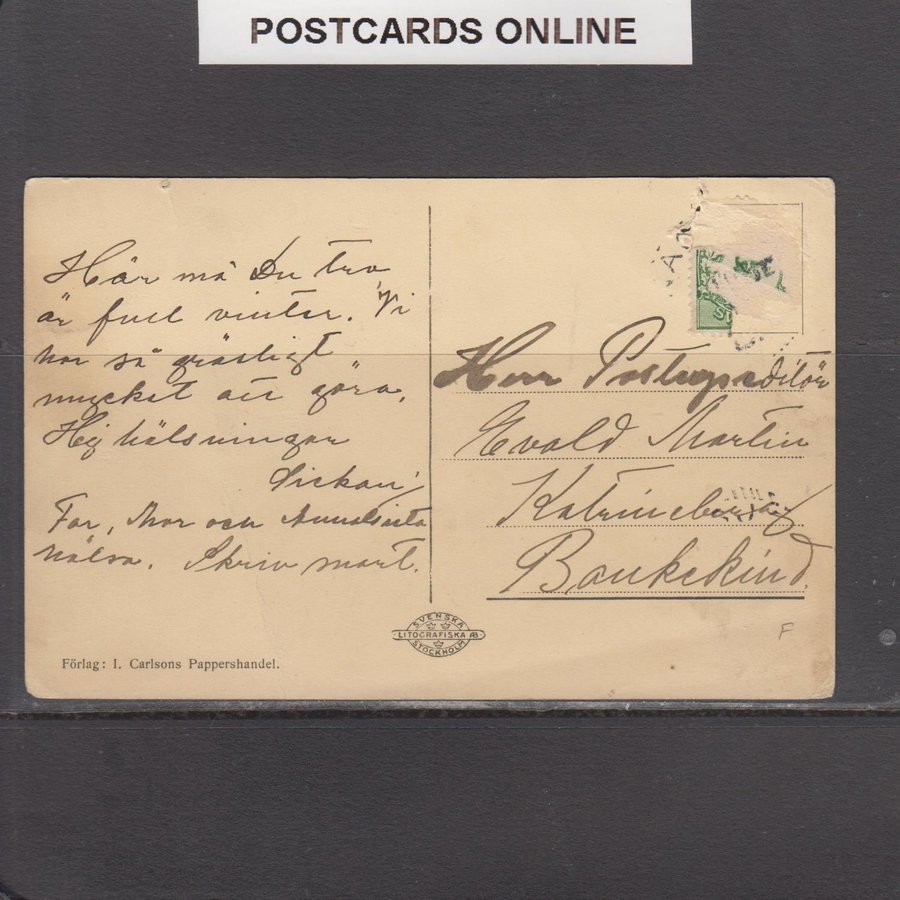 POSTCARDS ONLINE
Här må Du tro
är full vinter. Vi
har så gräsligt
mycket att göra.
Hej hälsningar
Sickan!
Far, Mor och
hälsa. Skriv snart.
Herr
Evald Martin
Katrineberg
Bankekind.
SVENSKA
LITOGRAFISKA AB
STOCKHOLM
Förlag: I. Carlsons Pappershandel.
F